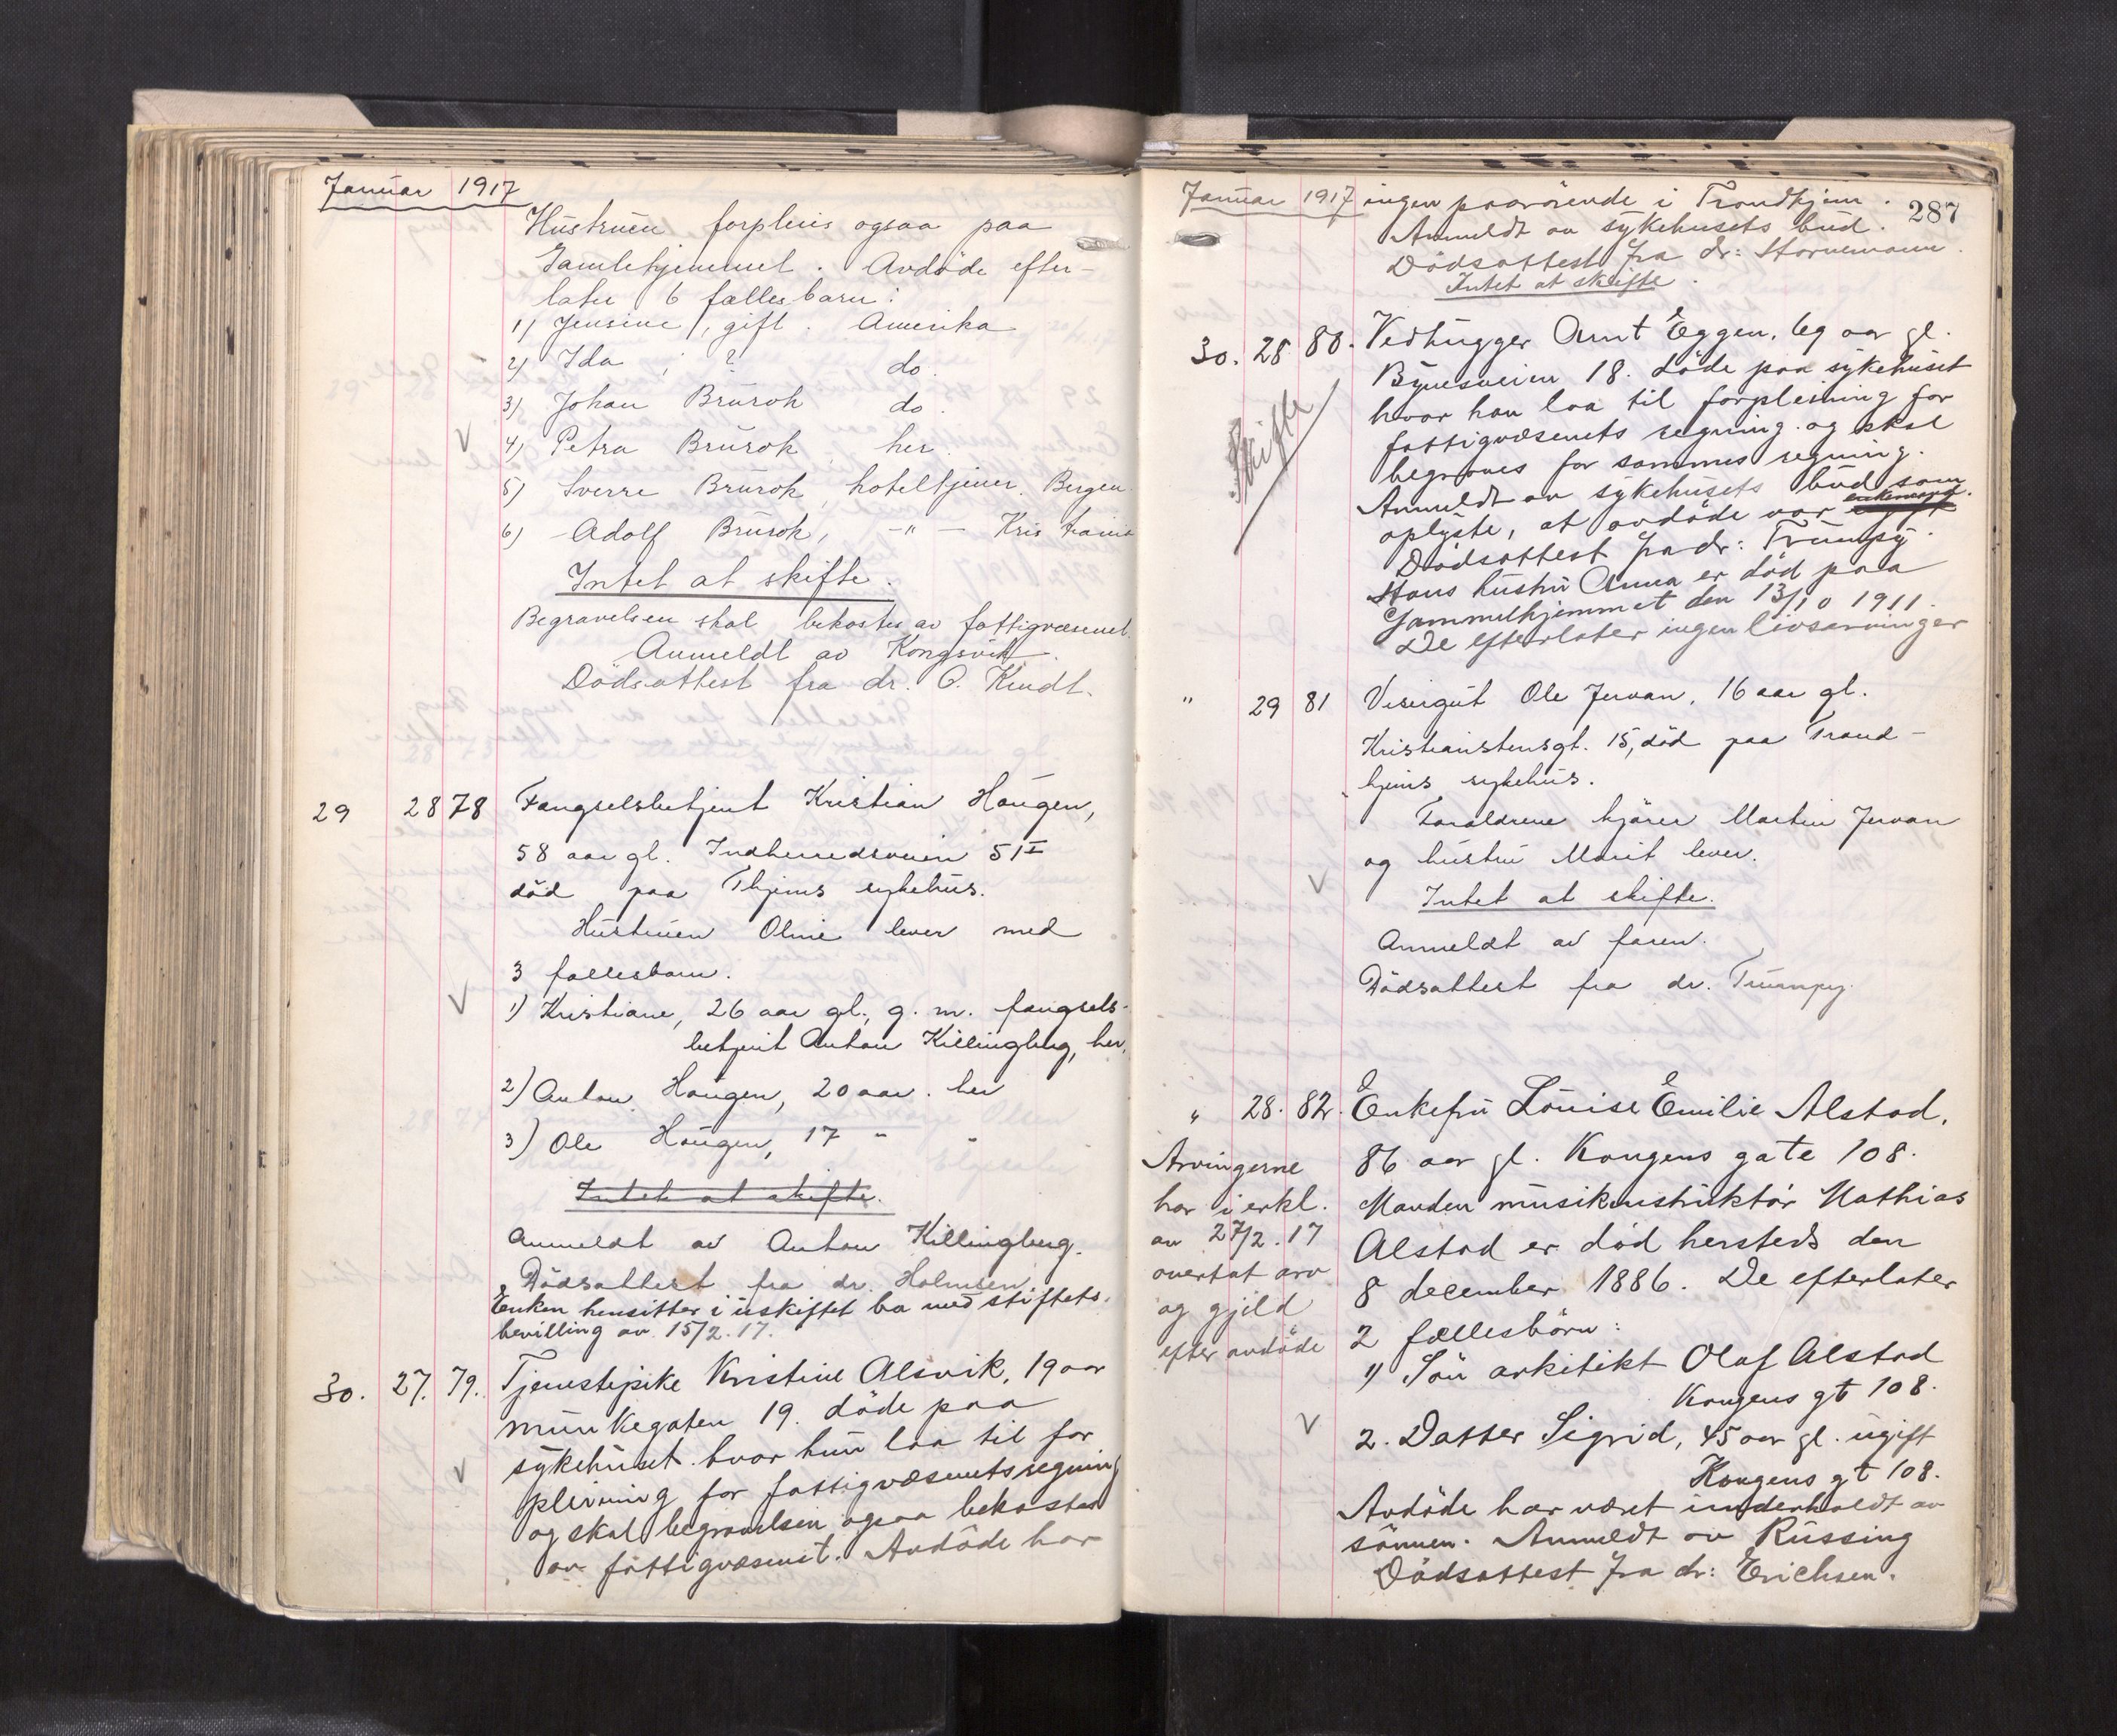 Januar 1917
Hustruen forpleies ogsaa paa
Gamlehjemmet. Avdøde efter-
later 6 fællesbarn:
1) Jensine, gift. Amerika
2) Ida, ? do.
3) Johan Brurok do.
4) Petra Brurok, her.
5) Sverre Brurok, hoteltjener. Bergen
6) Adolf Brurok, -"- Kristiania
Intet at skifte.
Begravelsen skal bekostes av fattigvæsenet.
Anmeldt av Kongsvik.
Dödsattest fra dr. O. Kindt.
29 28 78 Fængselsbetjent Kristian Haugen,
58 aar gl. Indherredsveien 51 I
död paa Thjems sykehus.
Hustruen Oline lever med
3 fællesbarn.
1) Kristiane, 26 aar gl., g. m. fængsels-
betjent Anton Killingberg, her.
2) Anton Haugen, 20 aar. her
3) Ole Haugen, 17 " "
Intet at skifte.
Anmeldt av Anton Killingberg.
Dödsattest fra dr. Holmsen.
Enken hensitter i uskiftet bo med stiftets-
bevilling av 15/2. 17.
30. 27. 79. Tjenestepike Kristine Alsvik, 19 aar
Munkegaten 19. döde paa
sykehuset hvor hun laa til for
pleining for fattigvæsenets regning
og skal begravelsen ogsaa bekostes
av fattigvæsenet. Avdöde har
Januar 1917 ingen paarörende i Trondhjem.
287
Anmeldt av sykehusets bud.
Dödsattest fra dr: Hornemann.
Intet at skifte.
30. 28 80. Vedhugger Arnt Eggen, 69 aar gl.
Bynesveien 18. döde paa sykehuset
hvor han laa til forpleining for
fattigvæsenets regning og skal
begraves for sammes regning.
Skifte
Anmeldt av sykehusets bud som
oplyste, at avdöde var enkemand.
Dödsattest fra dr: Trumpy.
Hans hustru Anna er död paa
Gammelhjemmet den 13/10 1911.
De efterlater ingen livsarvinger
" 29 81 Visergut Ole Jervan, 16 aar gl.
Kristianstensgt. 15, död paa Trond-
hjems sykehus.
Forældrene kjörer Martin Jervan
og hustru Marit lever.
Intet at skifte.
Anmeldt av faren.
Dödsattest fra dr. Trumpy.
" 28. 82. Enkefru Louise Emilie Alstad,
86 aar gl. Kongens gate 108.
Manden musikinstruktör Mathias
Alstad er död hersteds den
8 december 1886. De efterlater
2 fællesbörn:
1) Sön arkitekt Olaf Alstad
Kongens gt 108.
2. Datter Sigrid, 45 aar gl. ugift
Kongens gt 108.
Avdöde har været underholdt av
sönnen. Anmeldt av Russing
Dödsattest fra dr: Erichsen.
Arvingerne
har i erkl.
av 27/2. 17
overtat arv
og gjæld
efter avdöde